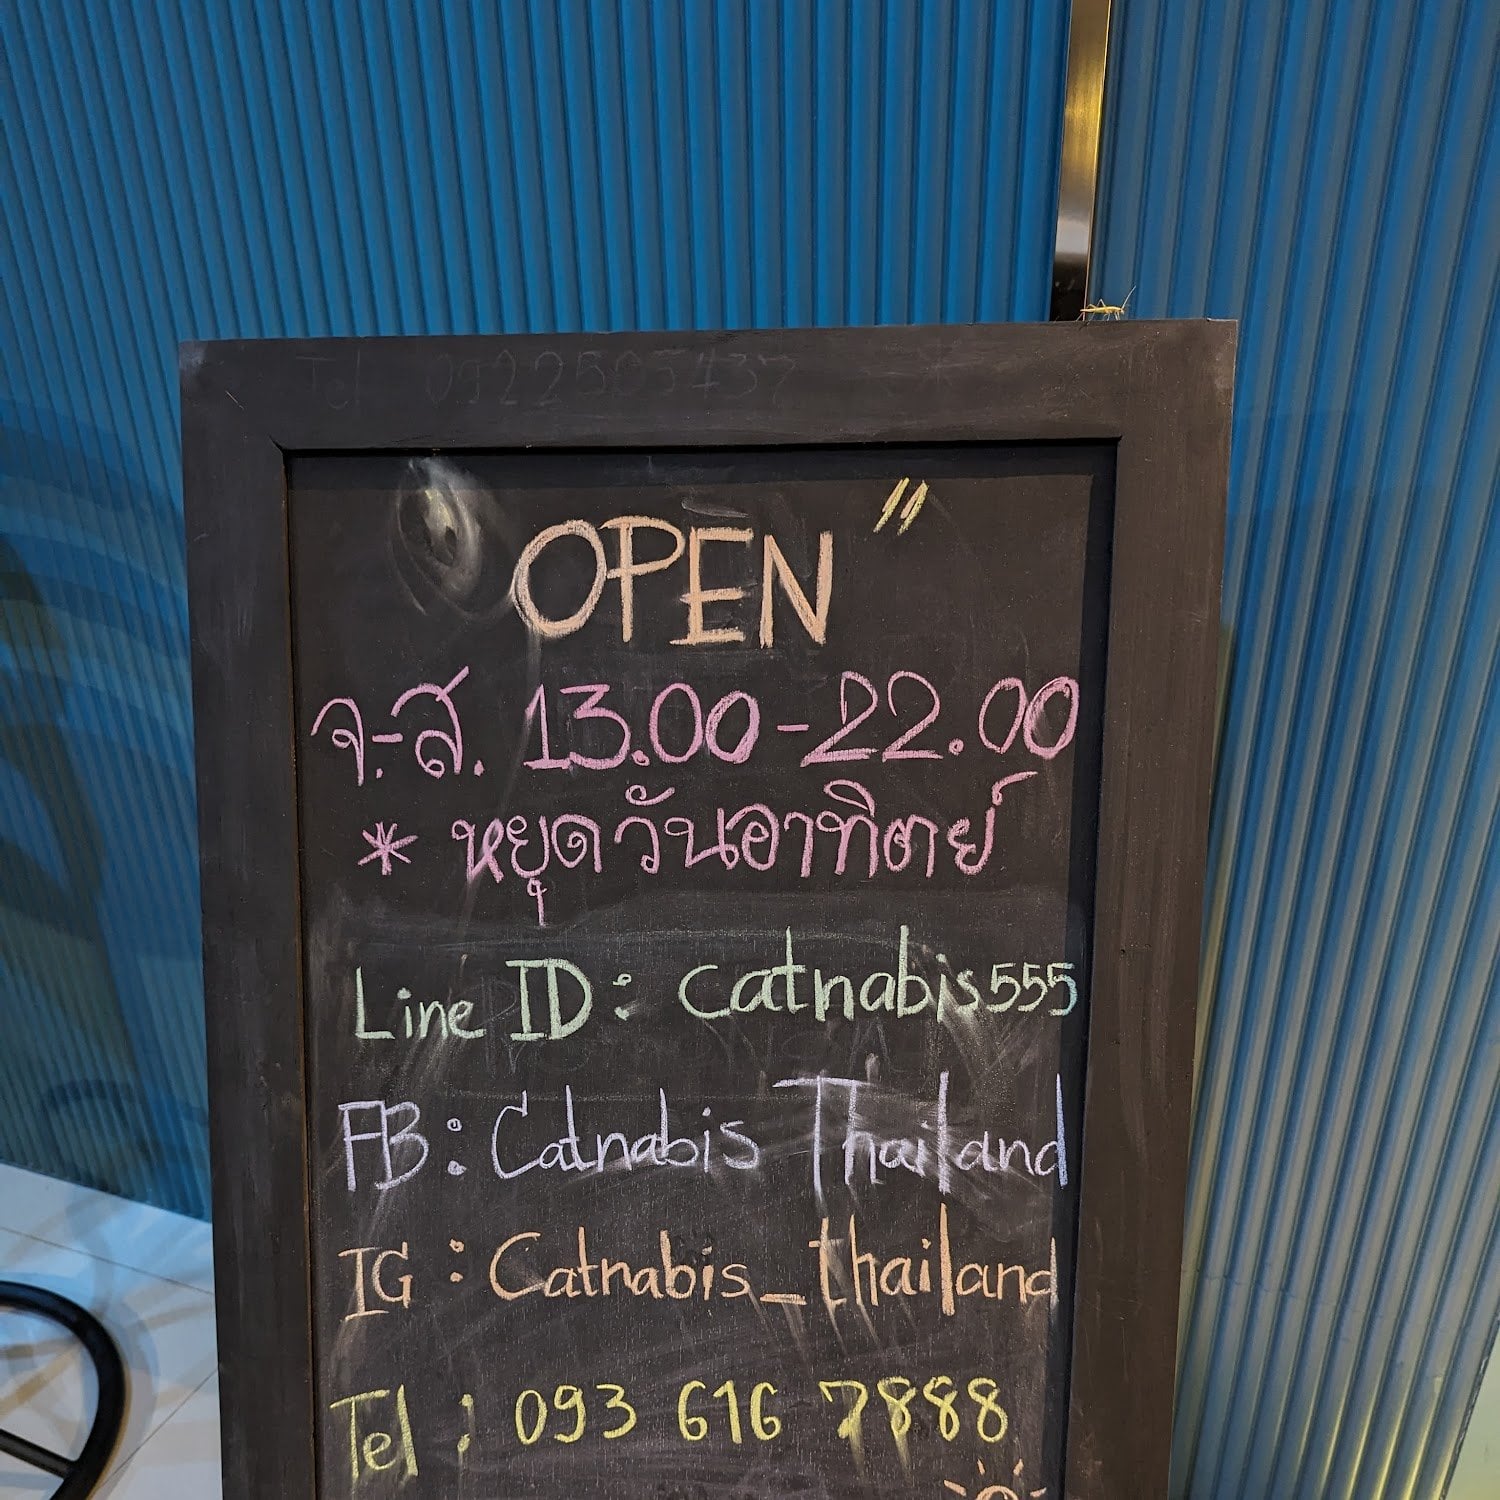 Tel 0922505437
OPEN "
จ.-ส. 13.00-22.00
* หยุดวันอาทิตย์
Line ID: catnabis555
FB: Catnabis Thailand
IG: Catnabis_thailand
Tel: 093 616 7888